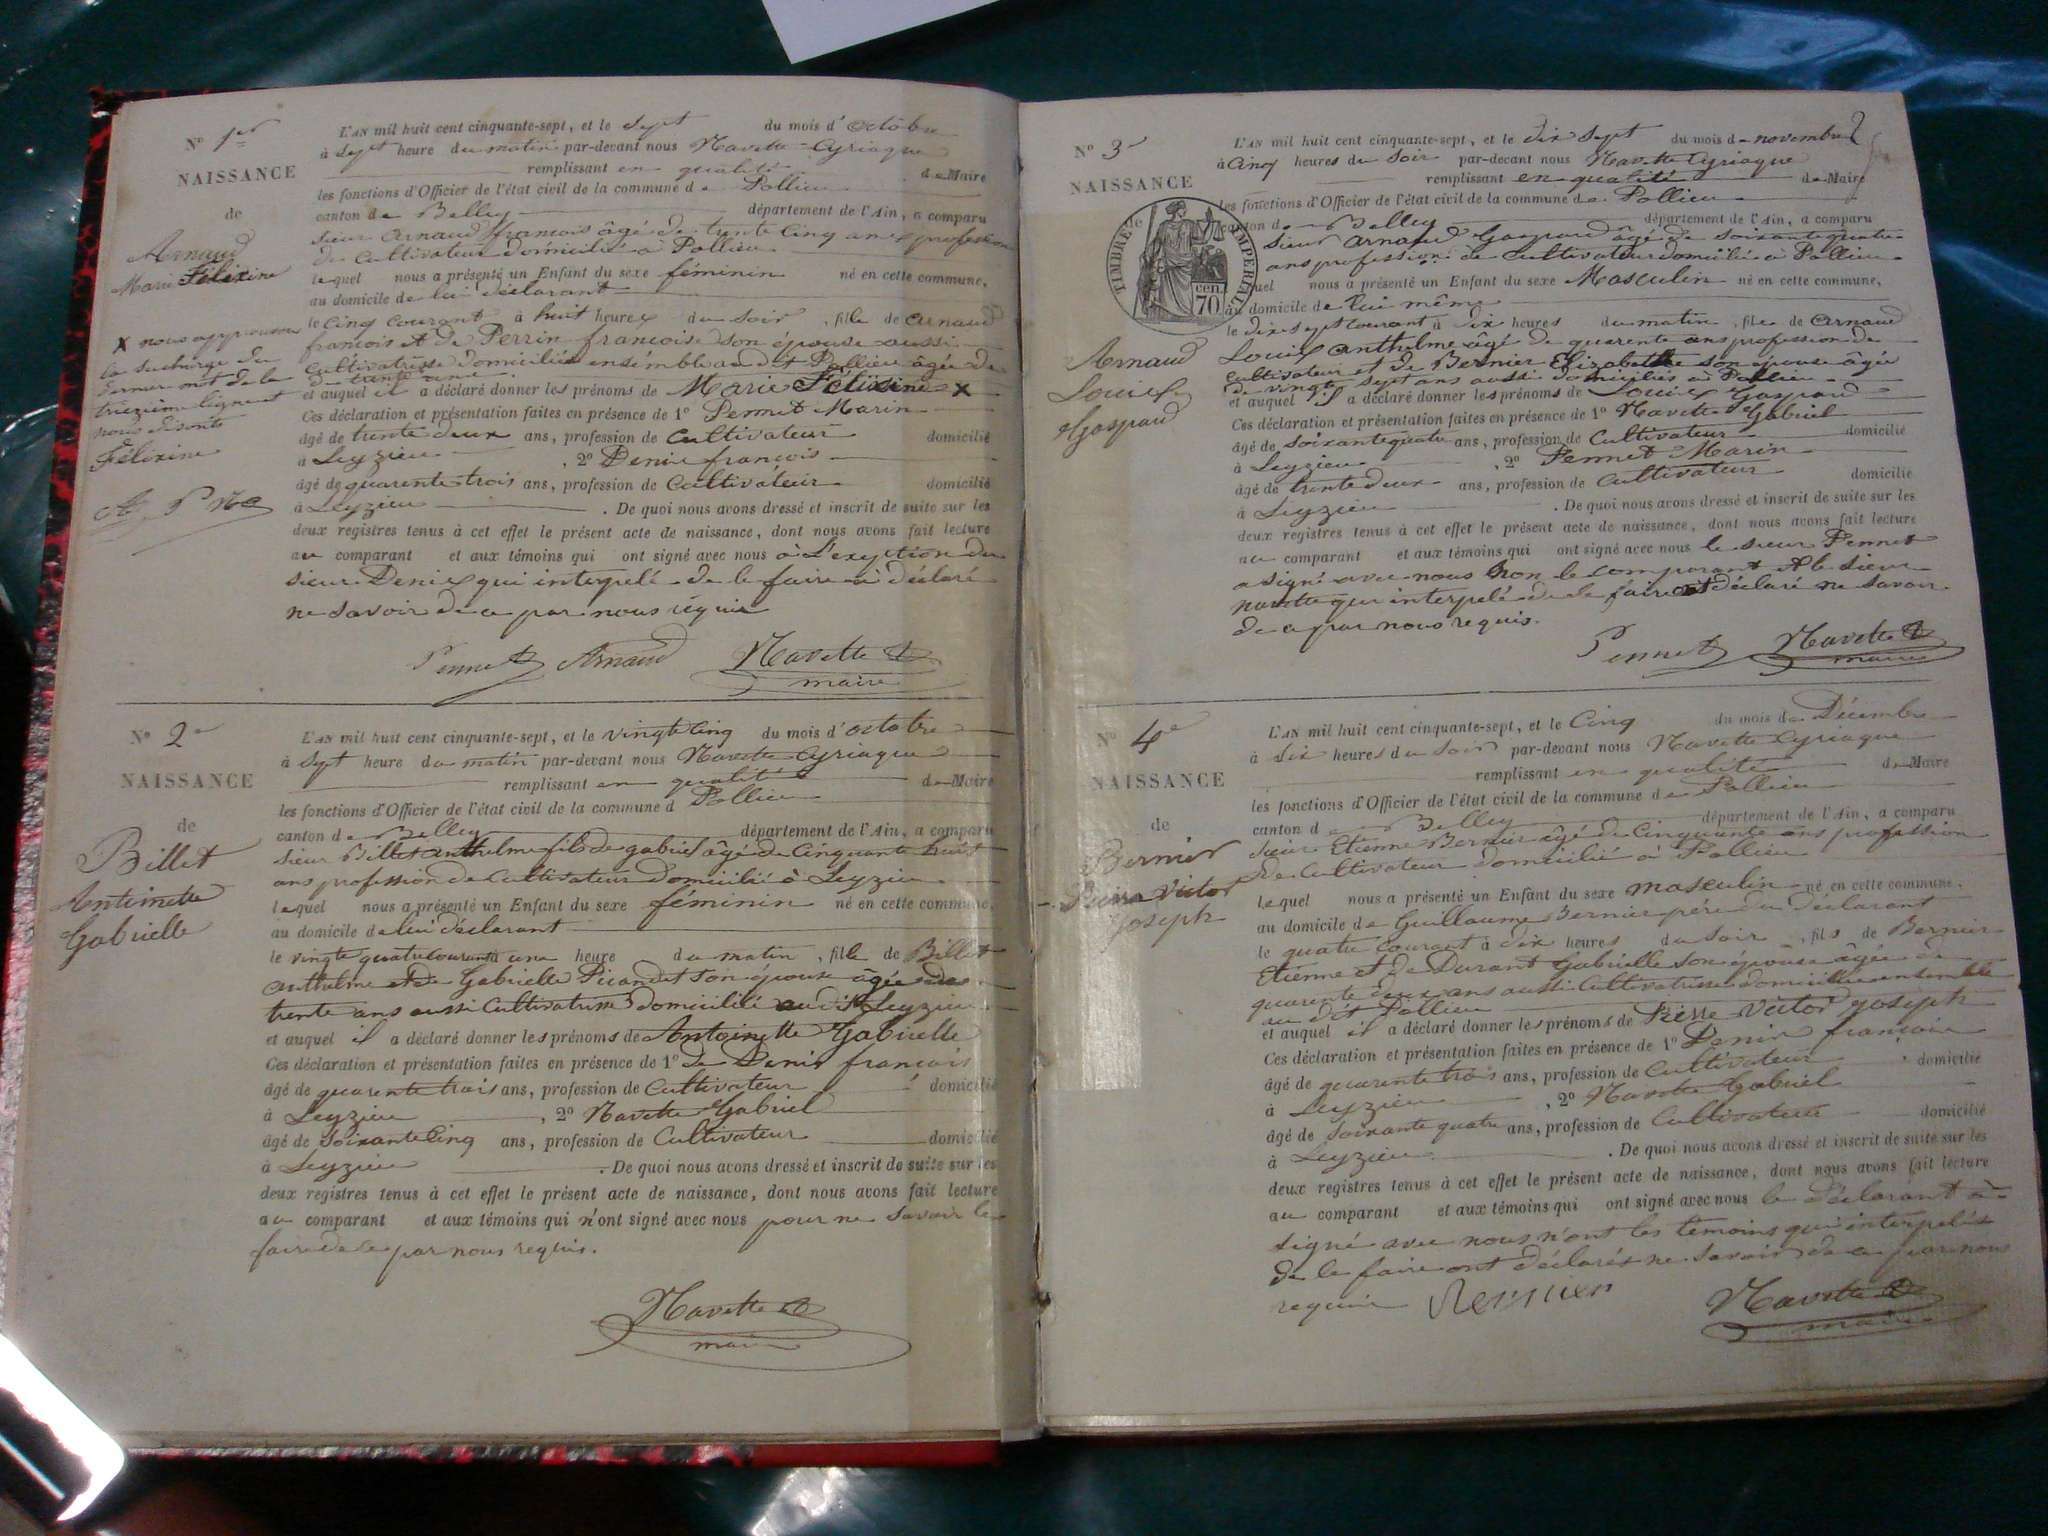 N° 1er
NAISSANCE
de
Arnaud
Marie Félixine
X nous approuvons
la surcharge du
dernier mot de la
treizième ligne et
nous disons
Félixine
L'AN mil huit cent cinquante-sept, et le sept du mois d'octobre
à sept heure du matin par-devant nous Navette Cyriaque
remplissant en qualité de Maire
les fonctions d'Officier de l'état civil de la commune de Pollieu
canton de Belley département de l'Ain, a comparu
sieur Arnaud françois âgé de trente cinq ans profession
de cultivateur domicilié à Pollieu
lequel nous a présenté un Enfant du sexe féminin né en cette commune,
au domicile de lui déclarant
le cinq courant à huit heures du soir, fille de Arnaud
françois et de Perrin françoise son épouse aussi
cultivatrice domiciliés ensemble au dit Pollieu âgée de
de trente ans
et auquel il a déclaré donner les prénoms de Marie Félixine X
Ces déclaration et présentation faites en présence de 1° Pennet Marin
âgé de trente deux ans, profession de Cultivateur domicilié
à Leyzieu, 2° Denis françois
âgé de quarente-trois ans, profession de Cultivateur domicilié
à Leyzieu. De quoi nous avons dressé et inscrit de suite sur les
deux registres tenus à cet effet le présent acte de naissance, dont nous avons fait lecture
au comparant et aux témoins qui ont signé avec nous à L'exeption du
sieur Denis qui interpelé de le faire à déclaré
ne savoir de ce par nous requis
Pennet Arnaud Navette
maire
N° 2e
NAISSANCE
de
Billet
Antoinette
Gabrielle
L'AN mil huit cent cinquante-sept, et le vingt cinq du mois d'octobre
à sept heure du matin par-devant nous Navette Cyriaque
remplissant en qualité de Maire
les fonctions d'Officier de l'état civil de la commune d Pollieu
canton de Belley département de l'Ain, a comparu
sieur Billet anthelme fils de gabriel âgé de Cinquante huit
ans profession de cultivateur domicilié à Leyzieu
lequel nous a présenté un Enfant du sexe féminin né en cette commune,
au domicile de lui déclarant
le vingt quatre courant à une heure du matin, fille de Billet
anthelme et de Gabrielle Picandet son épouse âgée de
trente ans aussi Cultivatrice domicilié au dit Leyzieu
et auquel il a déclaré donner les prénoms de Antoinette Gabrielle
Ces déclaration et présentation faites en présence de 1° de Denis françois
âgé de quarente trois ans, profession de Cultivateur domicilié
à Leyzieu, 2° Navette Gabriel
âgé de soixante Cinq ans, profession de Cultivateur domicilié
à Leyzieu. De quoi nous avons dressé et inscrit de suite sur les
deux registres tenus à cet effet le présent acte de naissance, dont nous avons fait lecture
au comparant et aux témoins qui n'ont signé avec nous pour ne savoir le
faire de ce par nous requis.
Navette
maire
N° 3
NAISSANCE
de
TIMBRE IMPERIAL
70 cen.
Arnaud
Louis
Gaspard
L'AN mil huit cent cinquante-sept, et le dix sept du mois de novembre
à Cinq heures du soir par-devant nous Navette Cyriaque
remplissant en qualité de Maire
les fonctions d'Officier de l'état civil de la commune de Pollieu
canton de Belley département de l'Ain, a comparu
sieur Arnaud Gaspard âgé de soixante quatre
ans profession de Cultivateur domicilié à Pollieu
quel nous a présenté un Enfant du sexe Masculin né en cette commune,
au domicile de lui même
le dix sept courant à dix heures du matin, fils de Arnaud
Louis anthelme âgé de quarente ans profession de
cultivateur et de Bernier Elizabethe son épouse âgée
de vingt sept ans aussi domiciliés à Pollieu
et auquel il a déclaré donner les prénoms de Louis Gaspard
Ces déclaration et présentation faites en présence de 1° Navette Gabriel
âgé de soixante quatre ans, profession de Cultivateur domicilié
à Leyzieu, 2° Pennet Marin
âgé de trente deux ans, profession de Cultivateur domicilié
à Leyzieu. De quoi nous avons dressé et inscrit de suite sur les
deux registres tenus à cet effet le présent acte de naissance, dont nous avons fait lecture
au comparant et aux témoins qui ont signé avec nous le sieur Pennet
a signé avec nous non le comparant et le sieur
navette qui interpelé de le faire ont déclaré ne savoir
de ce par nous requis.
Pennet Navette
maire
N° 4e
NAISSANCE
de
Bernier
Pierre Victor
Joseph
L'AN mil huit cent cinquante-sept, et le Cinq du mois de Décembre
à six heures du soir par-devant nous Navette Cyriaque
remplissant en qualité de Maire
les fonctions d'Officier de l'état civil de la commune de Pollieu
canton d Belley département de l'Ain, a comparu
sieur Etienne Bernier âgé de Cinquante ans profession
de Cultivateur domicilié à Pollieu
lequel nous a présenté un Enfant du sexe masculin né en cette commune,
au domicile de Guillaume Bernier père du déclarant
le quatre courant à dix heures du soir, fils de Bernier
Etienne et de Durant Gabrielle son épouse âgée de
quarente deux ans aussi Cultivatrice domiciliés ensemble
au dit Pollieu
et auquel il a déclaré donner les prénoms de Pierre Victor Joseph
Ces déclaration et présentation faites en présence de 1° Denis françois
âgé de quarente trois ans, profession de Cultivateur domicilié
à Leyzieu, 2° Navette Gabriel
âgé de soixante quatre ans, profession de Cultivateur domicilié
à Leyzieu. De quoi nous avons dressé et inscrit de suite sur les
deux registres tenus à cet effet le présent acte de naissance, dont nous avons fait lecture
au comparant et aux témoins qui ont signé avec nous le Déclarant à
signé avec nous n'ont les témoins qui interpelés
de le faire ont déclarés ne savoir de ce par nous
requis Bernier Navette
maire